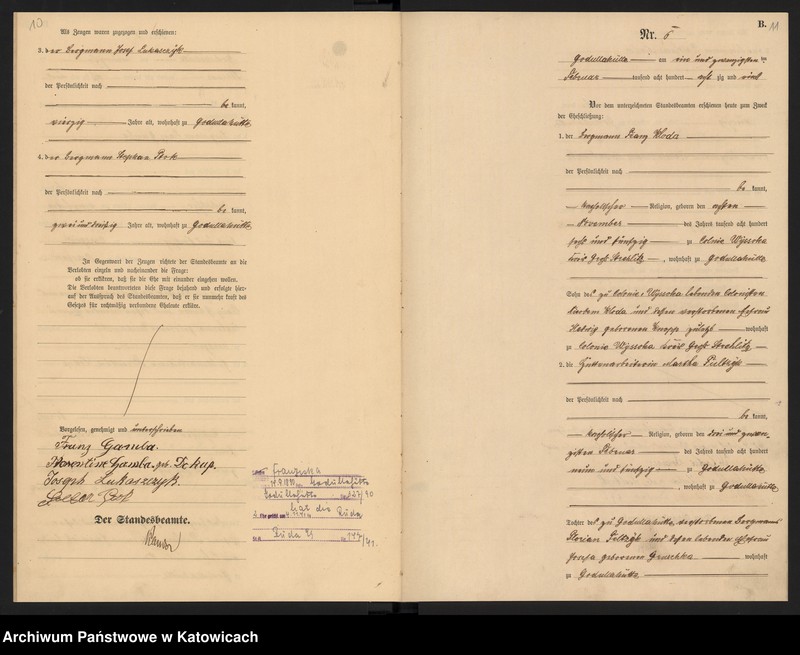 10
Als Zeugen waren zugezogen und erschienen:
3. der Bergmann Josef Lukaszczyk
der Persönlichkeit nach
be kannt,
vierzig Jahre alt, wohnhaft zu Godullahütte
4. der Bergmann Stephan
der Persönlichkeit nach
be kannt,
zwei und dreißig Jahre alt, wohnhaft zu Godullahütte
In Gegenwart der Zeugen richtete der Standesbeamte an die
Verlobten einzeln und nacheinander die Frage:
ob sie erklären, daß sie die Ehe mit einander eingehen wollen.
Die Verlobten beantworteten diese Frage bejahend und erfolgte hier-
auf der Ausspruch des Standesbeamten, daß er sie nunmehr kraft des
Gesetzes für rechtmäßig verbundene Eheleute erkläre.
Vorgelesen, genehmigt und unterschrieben
Franz Gamba.
Florentine Gamba, geb.
Joseph Lukaszczyk.
Der Standesbeamte.
Franziska
Godullahütte
Godullahütte 27/90
Ruda
Ruda
B.
11
Nr. 5
Godullahütte am ein und zwanzigsten
Februar tausend acht hundert acht zig und
Vor dem unterzeichneten Standesbeamten erschienen heute zum Zweck
der Eheschließung:
1. der Bergmann Franz Kloda
der Persönlichkeit nach
be kannt,
katholischer Religion, geboren den achten
November des Jahres tausend acht hundert
sechs und fünfzig zu Colonie Wyssoka
Kreis Groß Strehlitz, wohnhaft zu Godullahütte
Sohn des zu Colonie Wyssoka lebenden Colonisten
Kloda und dessen verstorbenen Ehefrau
Hedwig geborenen zuletzt wohnhaft
zu Colonie Wyssoka Kreis Groß Strehlitz
2. die Hüttenarbeiterin Martha
der Persönlichkeit nach
be kannt,
katholischer Religion, geboren den drei und zwan-
zigsten Februar des Jahres tausend acht hundert
neun und fünfzig zu Godullahütte
, wohnhaft zu Godullahütte
Tochter des zu Godullahütte verstorbenen Bergmanns
Florian und dessen lebenden Ehefrau
Josefa geborenen wohnhaft
zu Godullahütte
Archiwum Państwowe w Katowicach